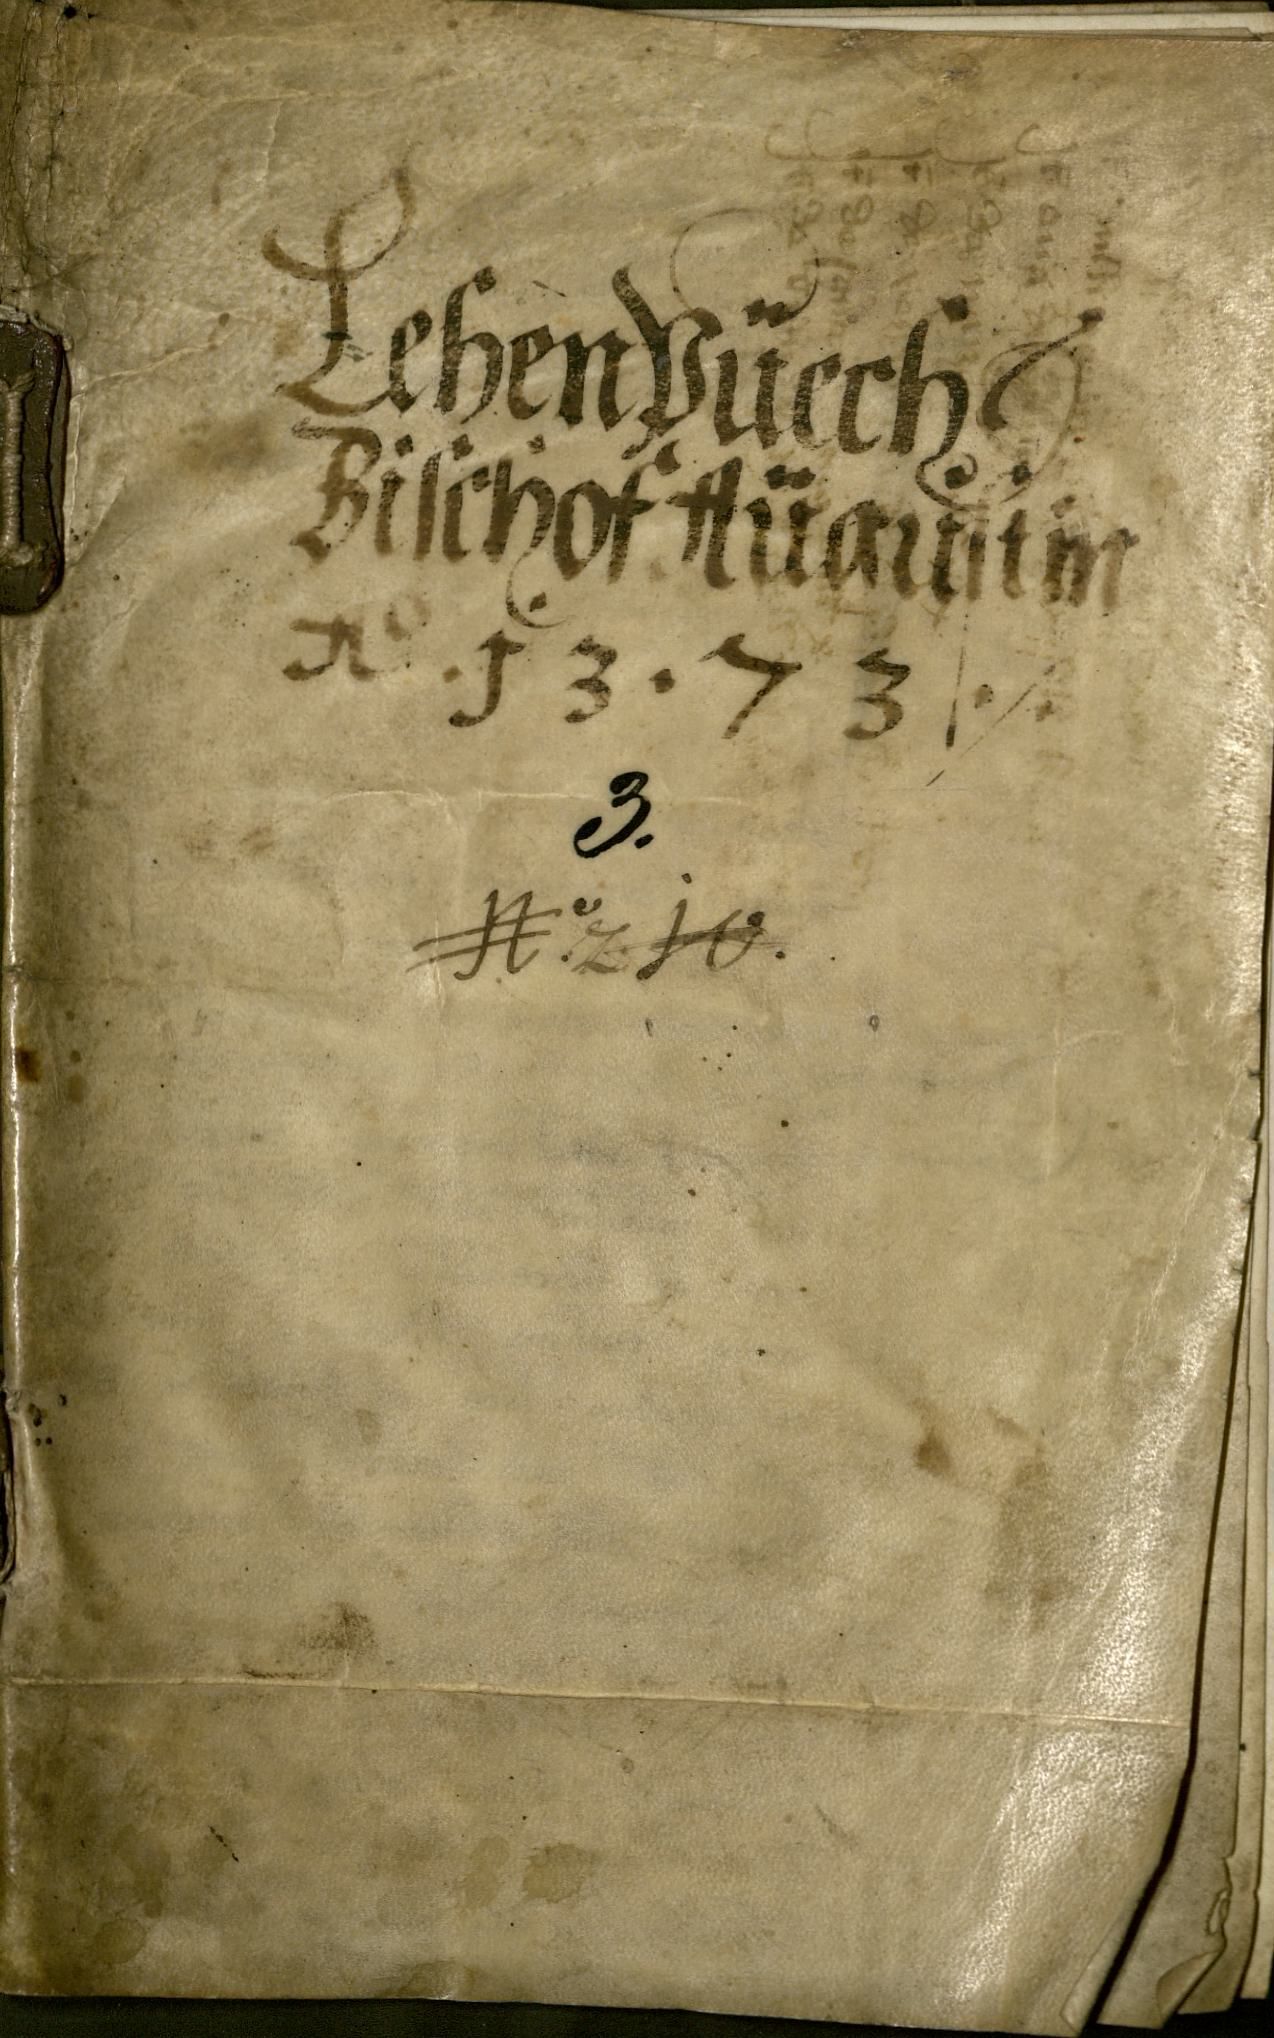 Lehen Püech
Bischof Aügüstin
Aº .1 3 . 7 3 ./.
3.
Nº. 210.